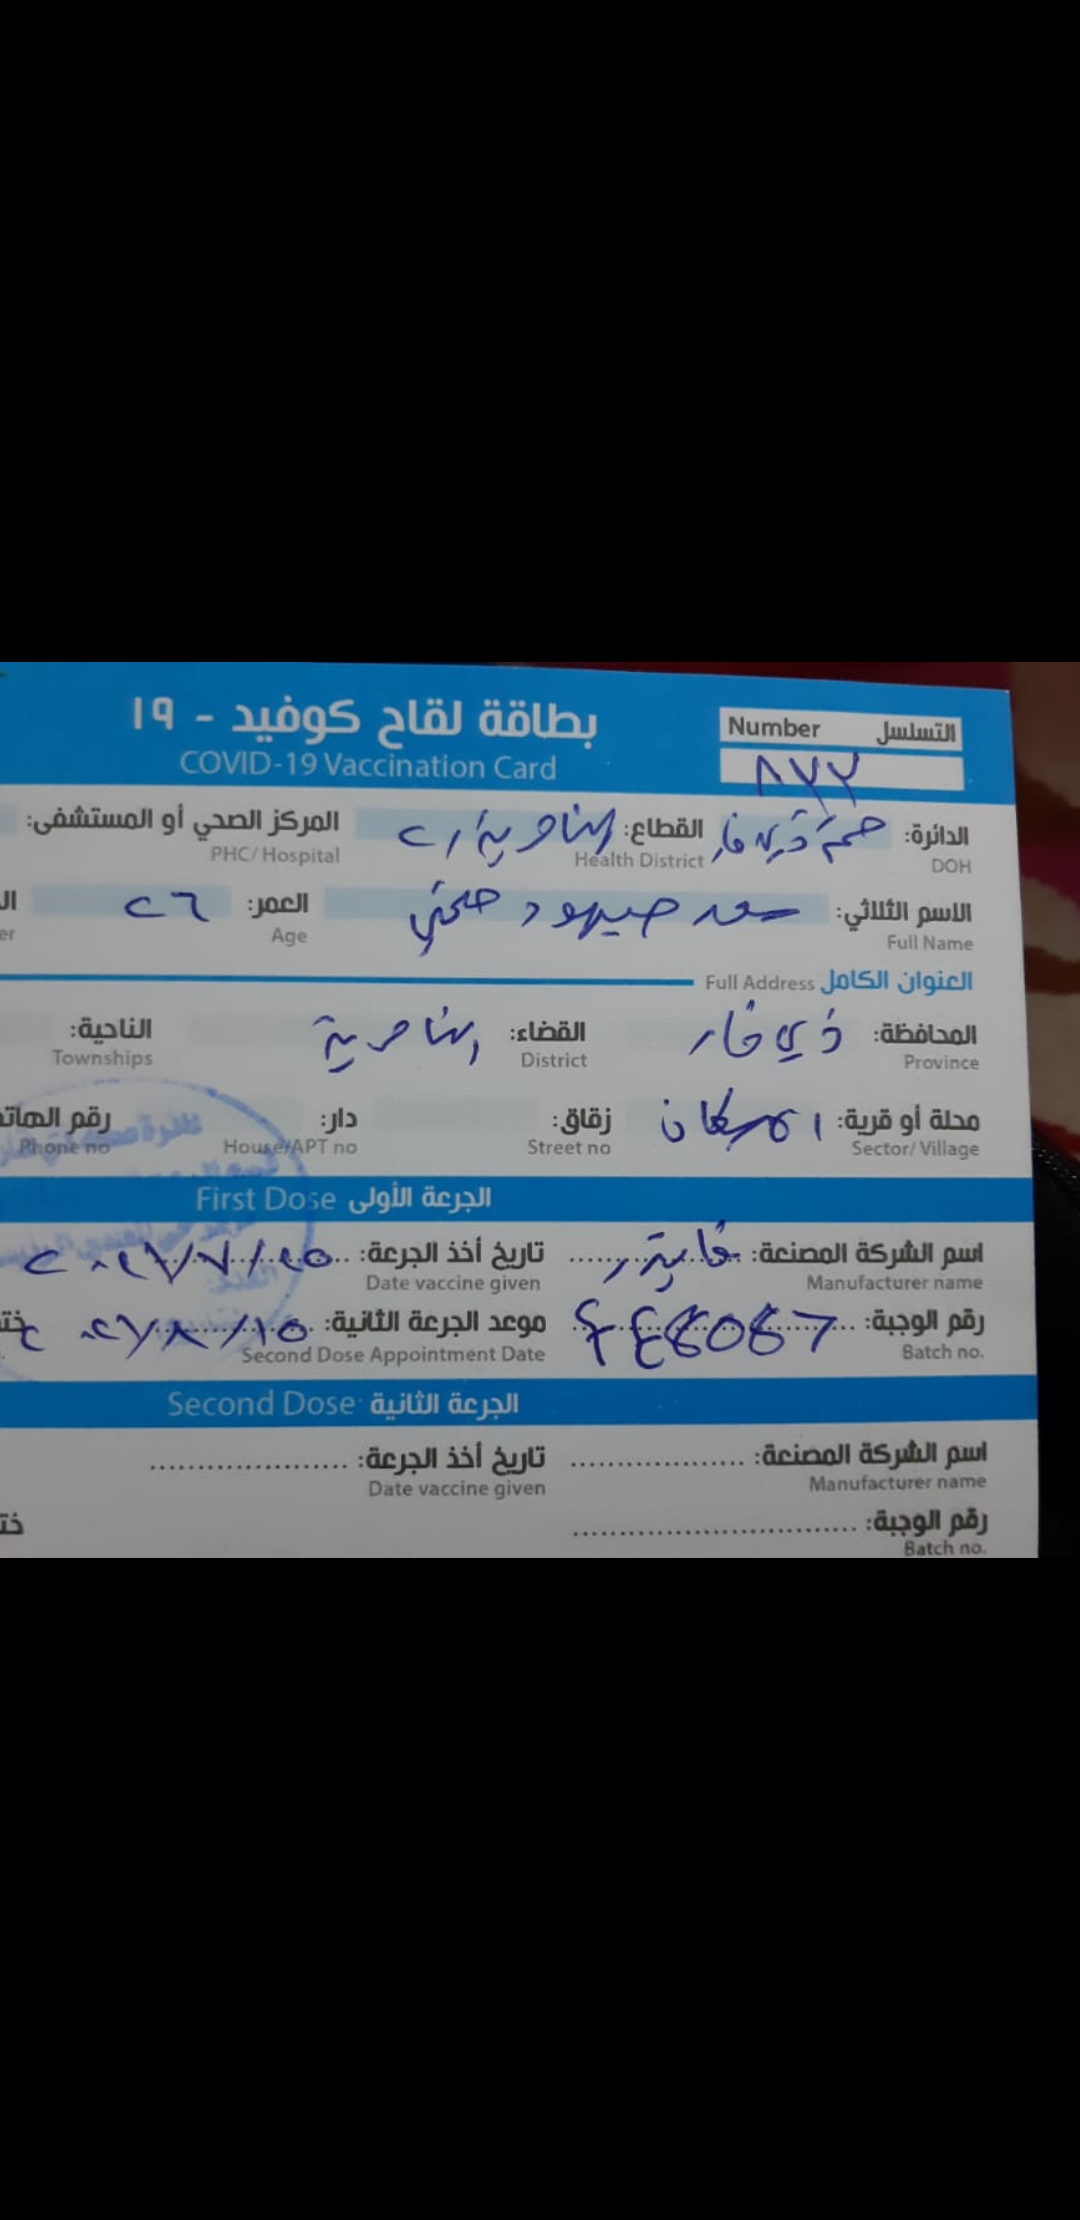 بطاقة لقاح كوفيد - ١٩
COVID-19 Vaccination Card
التسلسل Number
٨٧٢
الدائرة: صحة ذي قار القطاع: الناصرية / ٢ المركز الصحي أو المستشفى:
DOH Health District PHC/ Hospital
الاسم الثلاثي: سعد صيهود العمر: ٢٦
Full Name Age
العنوان الكامل Full Address
المحافظة: ذي قار القضاء: الناصرية الناحية:
Province District Townships
محلة أو قرية: الاسكان زقاق: دار: رقم الهاتف
Sector/ Village Street no House/APT no Phone no
الجرعة الأولى First Dose
اسم الشركة المصنعة: فايزر تاريخ أخذ الجرعة: ٢٠٢١/٧/٢٥
Manufacturer name Date vaccine given
رقم الوجبة: FE8087 موعد الجرعة الثانية: ٢٠٢١/٨/١٥
Batch no. Second Dose Appointment Date
الجرعة الثانية Second Dose
اسم الشركة المصنعة: تاريخ أخذ الجرعة:
Manufacturer name Date vaccine given
رقم الوجبة:
Batch no.